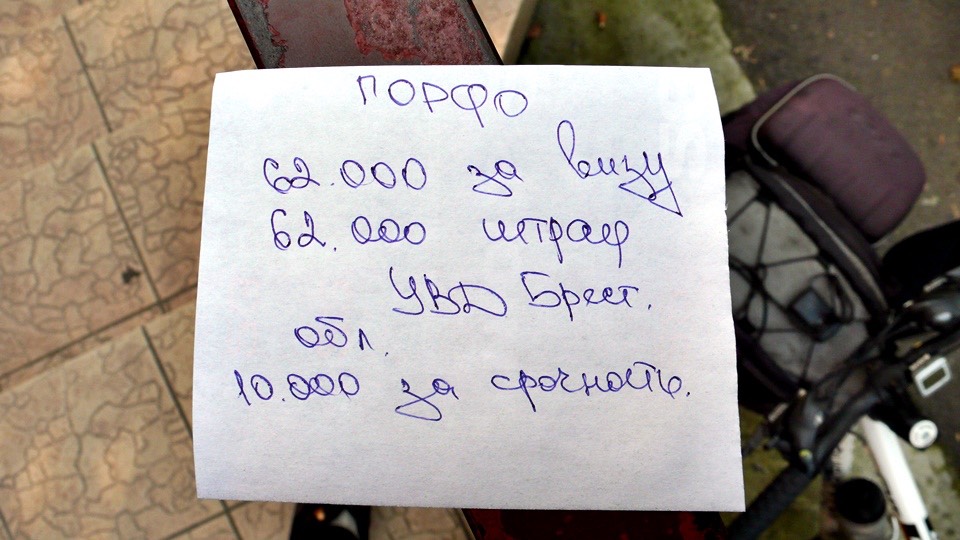 ПОРФО
62.000 за визу
62.000 штраф
УВД Брест.
обл.
10.000 за срочность.